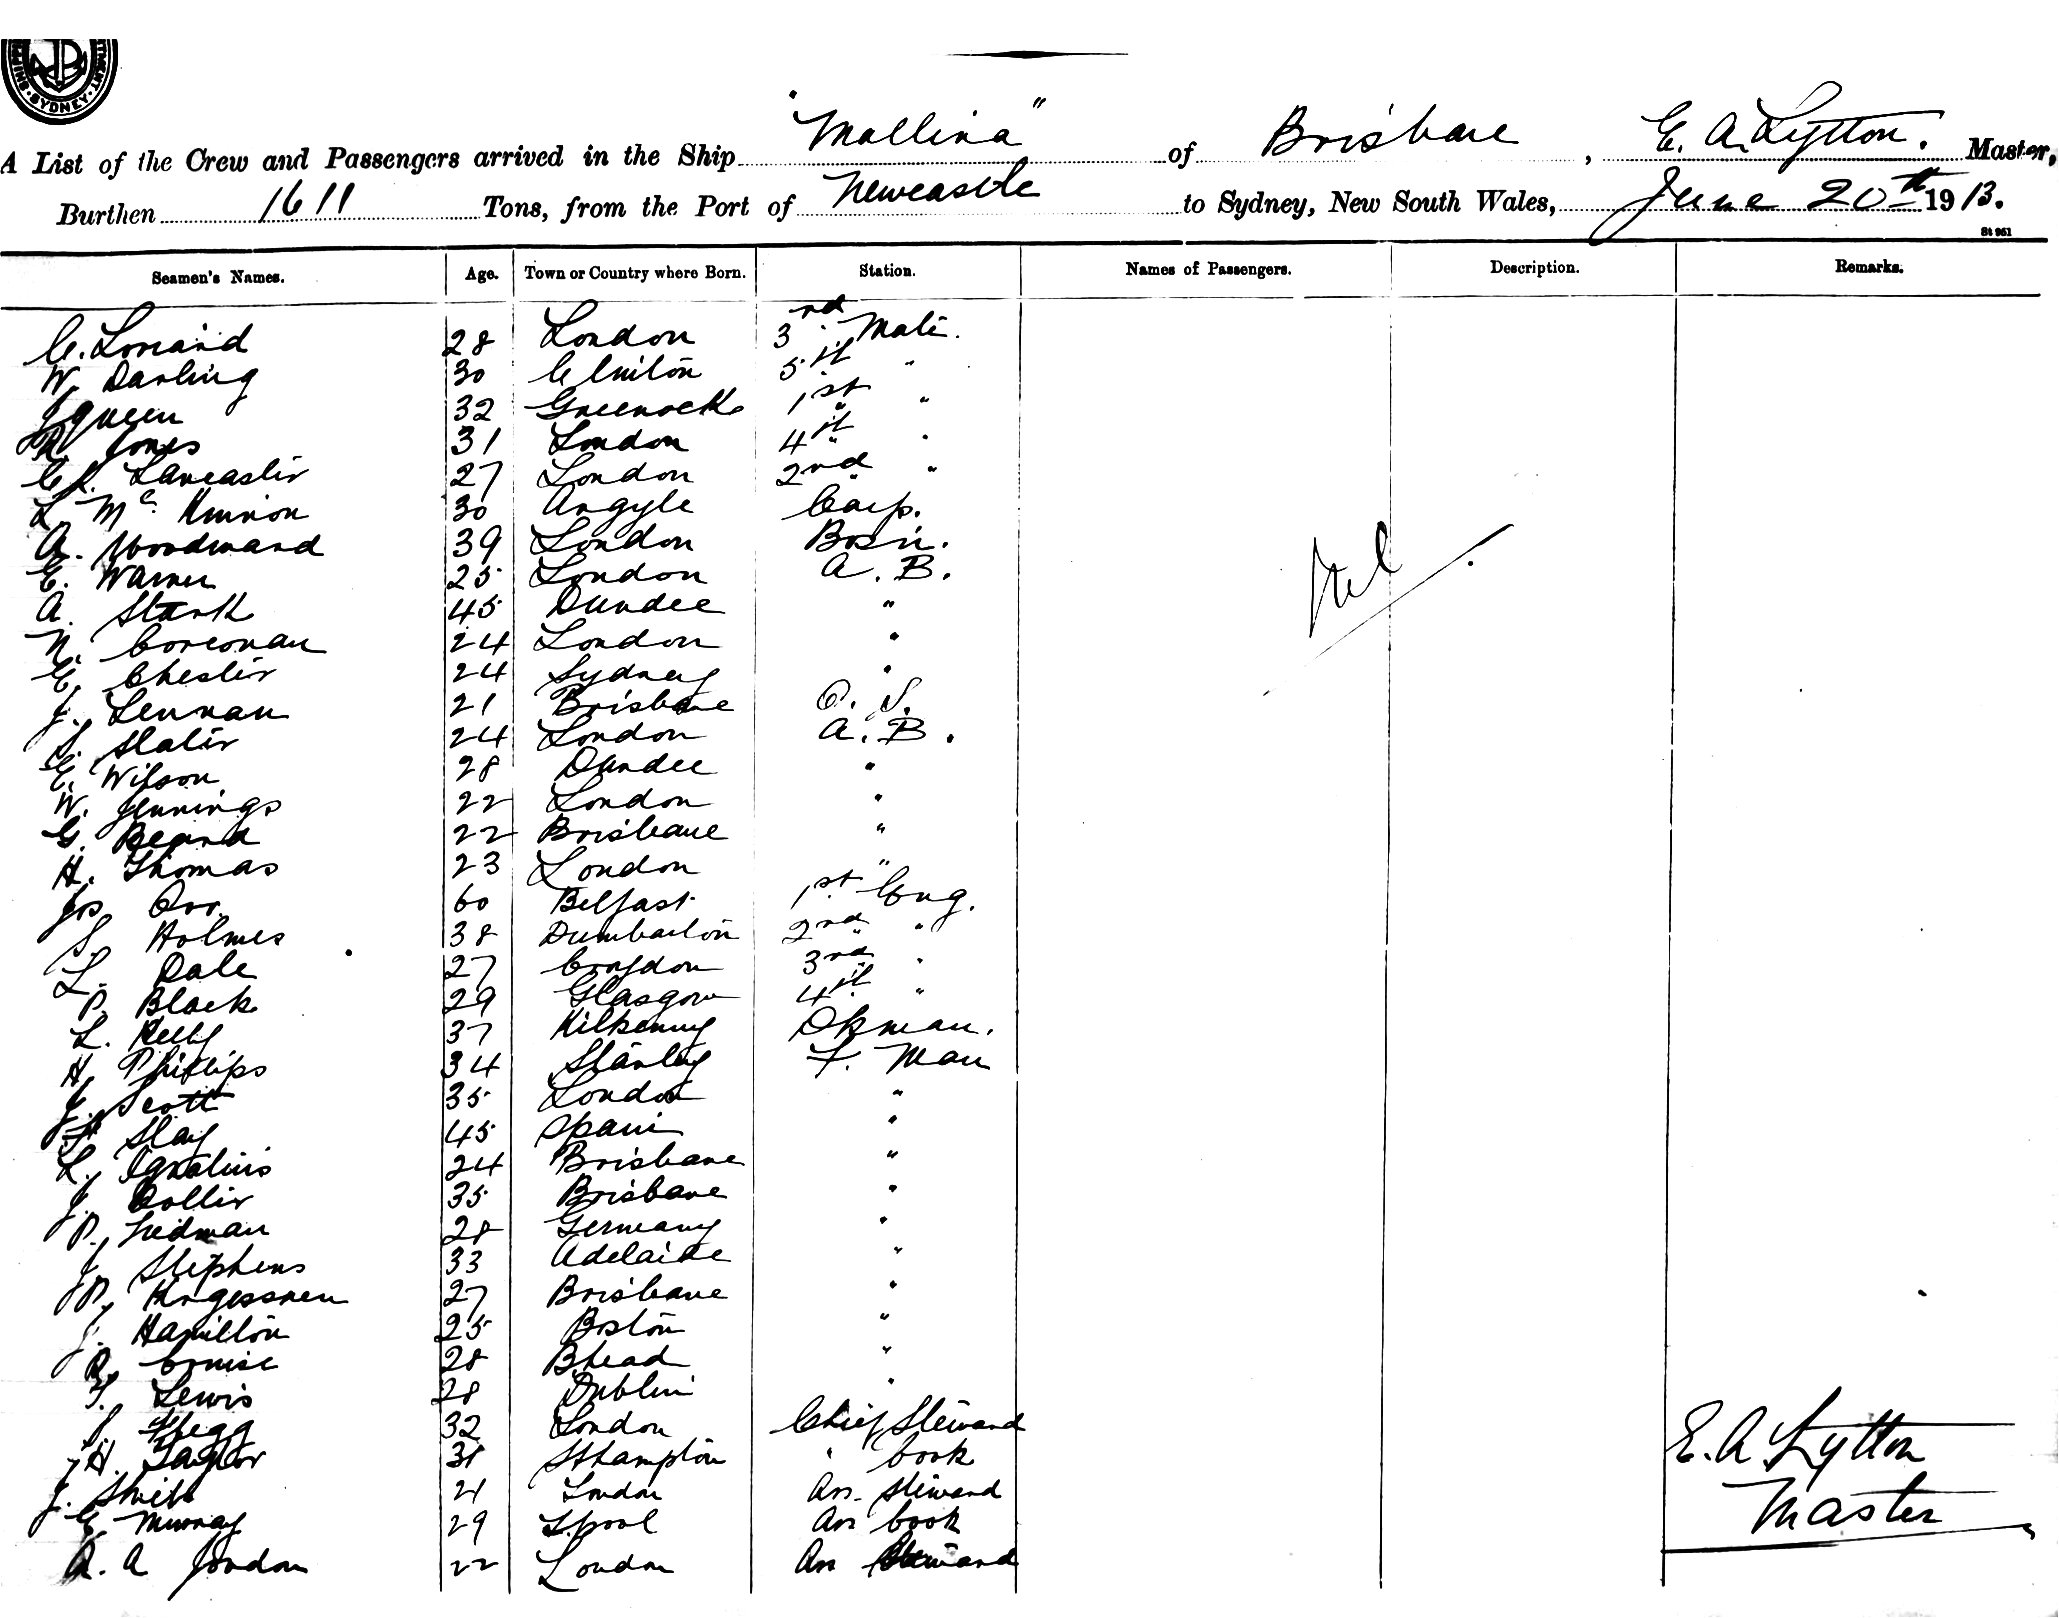 SYDNEY
"Mallina"
A List of the Crew and Passengers arrived in the Ship "Mallina" of Brisbane, E. A. Lytton. Master,
Burthen 1611 Tons, from the Port of Newcastle to Sydney, New South Wales, June 20th 1913.
St 961
Seamen's Names. Age. Town or Country where Born. Station. Names of Passengers. Description. Remarks.
C. 28 London 3rd Mate.
W. Darling 30 5th "
J Queen 32 Greenock 1st " "
R. Jones 31 London 4th " "
C. Lancaster 27 London 2nd " "
L Mc Kinnon 30 Argyle Carp.
A. Woodward 39 London Bosn.
E. Warner 25 London A. B.
A. Stark 45 Dundee "
N. Corconan 24 London "
E. Chester 24 Sydney "
J. Lennan 21 Brisbane O. S.
S. Slater 24 London A. B.
E. Wilson 28 Dundee "
W. Jennings 22 London "
G. Beard 22 Brisbane "
H. Thomas 23 London "
Jos Orr. 60 Belfast 1st Eng.
S. Holmes 38 Dumbarton 2nd " "
L. Dale 27 Croydon 3rd "
P. Black 29 Glasgow 4th "
L. Kelly 37 Kilkenny Dkman.
H. Phillips 34 Stanley F. Man
J. Scott 35 London "
F. Slay 45 Spain "
L. Ignatius 24 Brisbane "
J. Collir 35 Brisbane "
P. 28 Germany "
J. Stephens 33 Adelaide "
P. 27 Brisbane "
J. Hamilton 25 Boston "
R. Cruise 28 B.head "
T. Lewis 28 Dublin "
S. 32 London Chief Steward
H. Taylor 31 Sthampton " Cook
J. Smith 21 London Ass. Steward
E. Murray 29 L.pool Ass Cook
A. A Jordan 22 London Ass Steward
Nil
E. A Lytton
Master